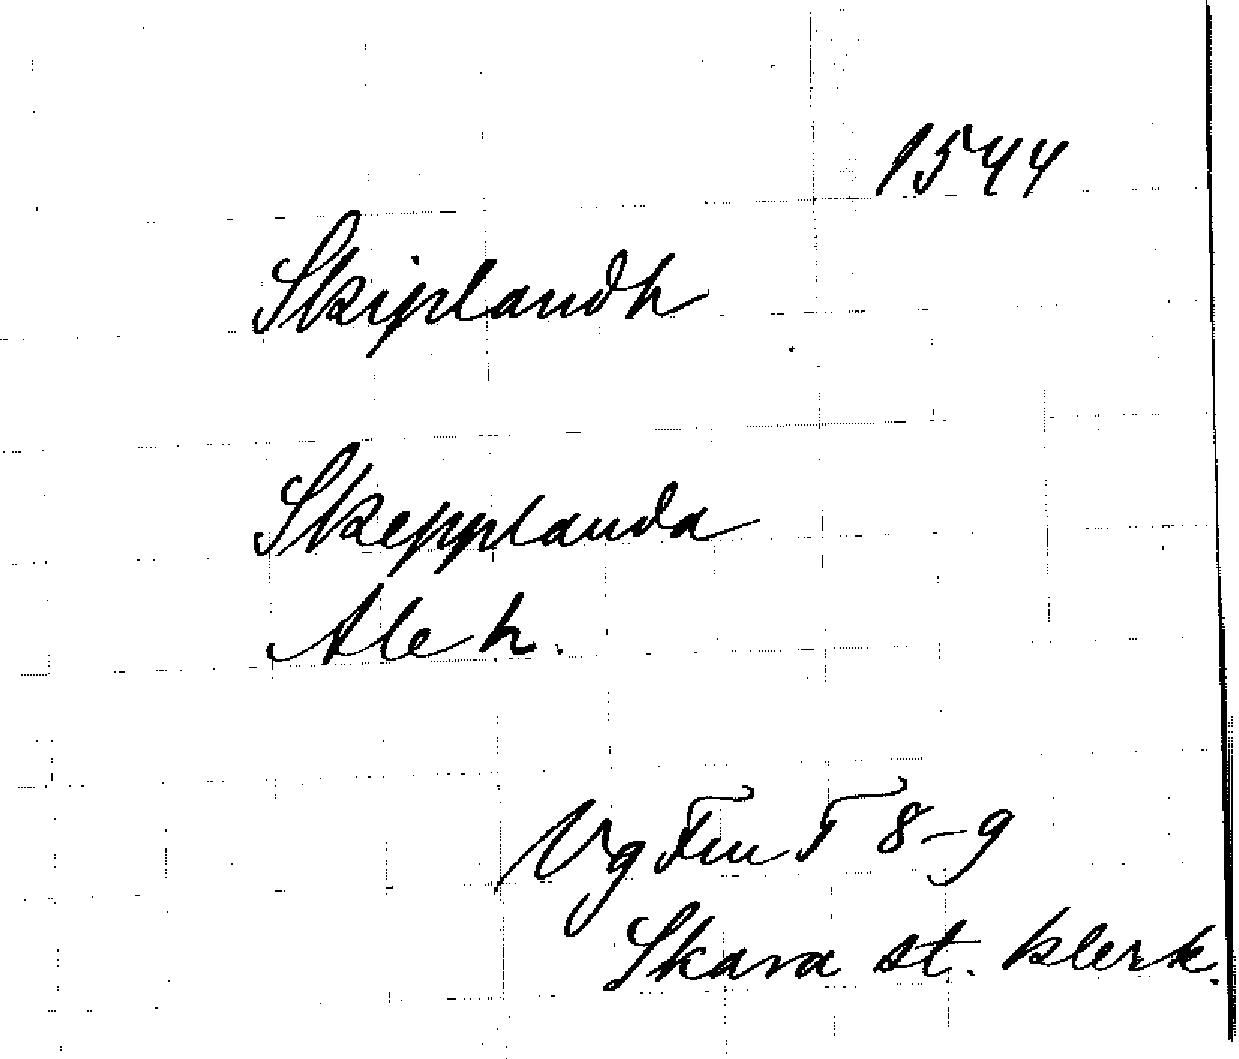 1544
Skiplandh
Skepplanda
Ale h.
Vg Fmt T 8-9
Skara st. klerk.